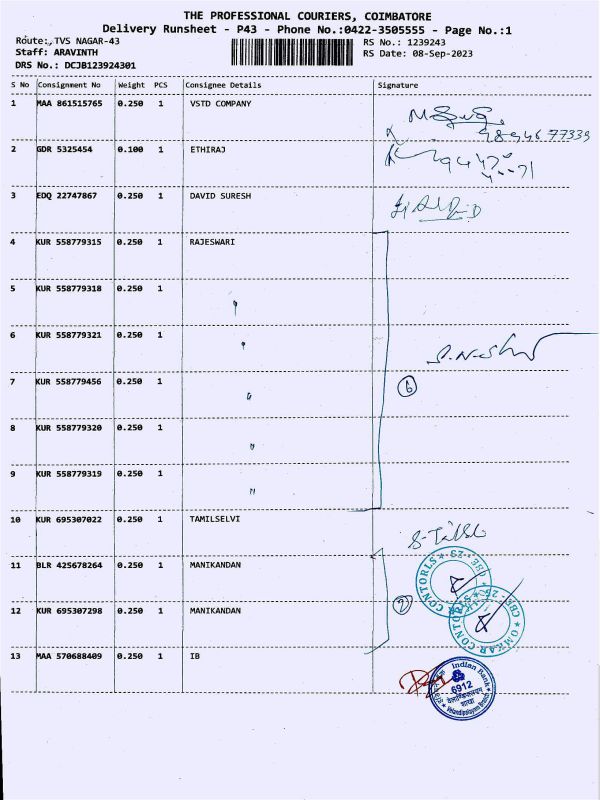 THE PROFESSIONAL COURIERS, COIMBATORE
Delivery Runsheet - P43 - Phone No.:0422-3505555 - Page No.:1
Route:,TVS NAGAR-43
RS No.: 1239243
Staff: ARAVINTH
RS Date: 08-Sep-2023
DRS No.: DCJB123924301
S No Consignment No Weight PCS Consignee Details Signature
1 MAA 861515765 0.250 1 VSTD COMPANY
9894677339
2 GDR 5325454 0.100 1 ETHIRAJ
3 EDQ 22747867 0.250 1 DAVID SURESH
4 KUR 558779315 0.250 1 RAJESWARI
5 KUR 558779318 0.250 1 "
6 KUR 558779321 0.250 1 "
7 KUR 558779456 0.250 1 "
6
8 KUR 558779320 0.250 1 "
9 KUR 558779319 0.250 1 "
10 KUR 695307022 0.250 1 TAMILSELVI
11 BLR 425678264 0.250 1 MANIKANDAN
12 KUR 695307298 0.250 1 MANIKANDAN
2
OMKAR CONTORLS
CBE - 25
13 MAA 570688409 0.250 1 IB
Indian Bank
6912
शाखा
Velandipalayam Branch